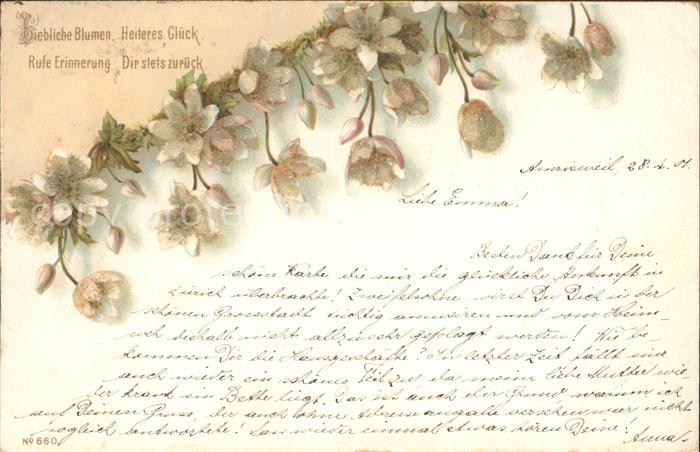 Liebliche Blumen, Heiteres Glück,
Rufe Erinnerung Dir stets zurück.
Amrisweil, 28.4.01.
Liebe Emma!
Besten Dank für Deine
schöne Karte die mir die glückliche Ankunft in
Zürich überbrachte! Zweifelsohne wirst Du Dich in der
schönen Grossstadt tüchtig amüsieren und vom Heim-
weh deshalb nicht allzusehr geplagt werden! Wie be-
kommen Dir die Hausgeschäfte? In letzter Zeit fällt mir
auch wieder ein schönes Teil zu, da meine liebe Mutter wie-
der krank im Bette liegt. Das ist auch der Grund warum ich
auf Deinen Gruss, der auch ohne Adressangabe versehen war nicht
sogleich antwortete! Lass wieder einmal etwas hören Deine
Anna.
No 660.